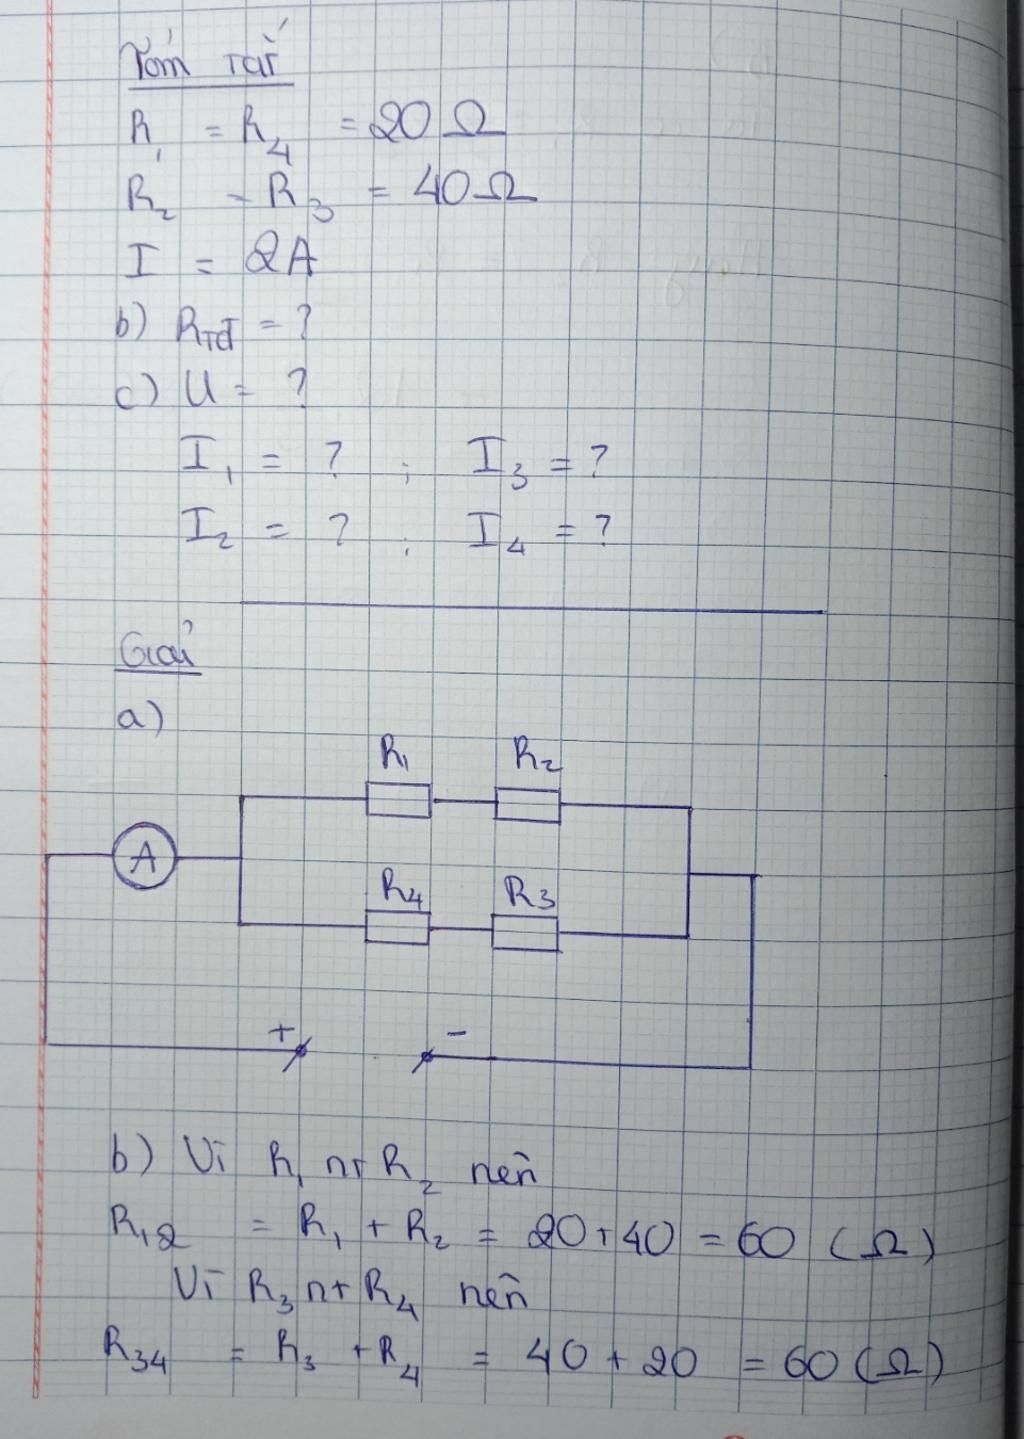 Tóm tắt
R₁ = R₄ = 20 Ω
R₂ = R₃ = 40 Ω
I = 2A
b) R_TĐ = ?
c) U = ?
I₁ = ? ; I₃ = ?
I₂ = ? ; I₄ = ?
Giải
a)
R₁ R₂
A
R₄ R₃
+ -
b) Vì R₁ nt R₂ nên
R₁₂ = R₁ + R₂ = 20 + 40 = 60 (Ω)
Vì R₃ nt R₄ nên
R₃₄ = R₃ + R₄ = 40 + 20 = 60 (Ω)